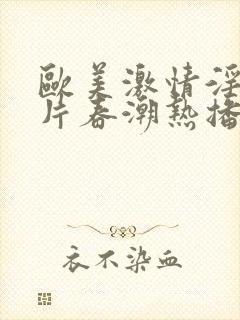 歐美激情淫
片春潮熱播
衣不染血